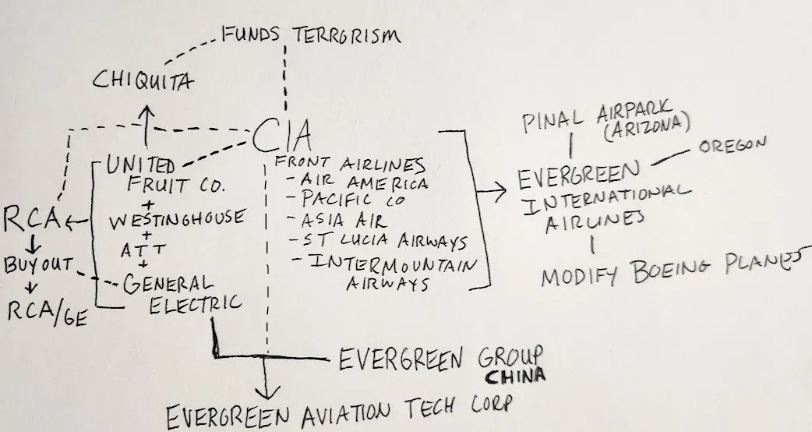 FUNDS TERRORISM
CHIQUITA
CIA
UNITED
FRUIT CO.
+
WESTINGHOUSE
+
ATT
+
GENERAL
ELECTRIC
RCA
BUYOUT
RCA/GE
FRONT AIRLINES
- AIR AMERICA
- PACIFIC CO
- ASIA AIR
- ST LUCIA AIRWAYS
- INTERMOUNTAIN
AIRWAYS
PINAL AIRPARK
(ARIZONA)
OREGON
EVERGREEN
INTERNATIONAL
AIRLINES
MODIFY BOEING PLANES
EVERGREEN GROUP
CHINA
EVERGREEN AVIATION TECH CORP